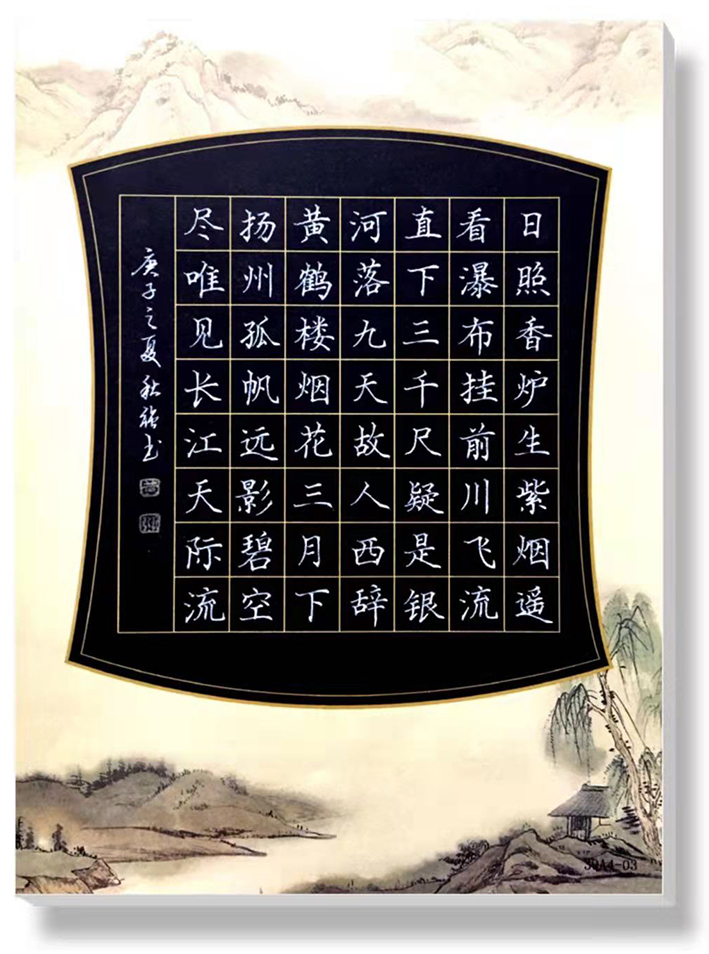 日照香炉生紫烟遥
看瀑布挂前川飞流
直下三千尺疑是银
河落九天故人西辞
黄鹤楼烟花三月下
扬州孤帆远影碧空
尽唯见长江天际流
庚子之夏秋强书
39A4-03